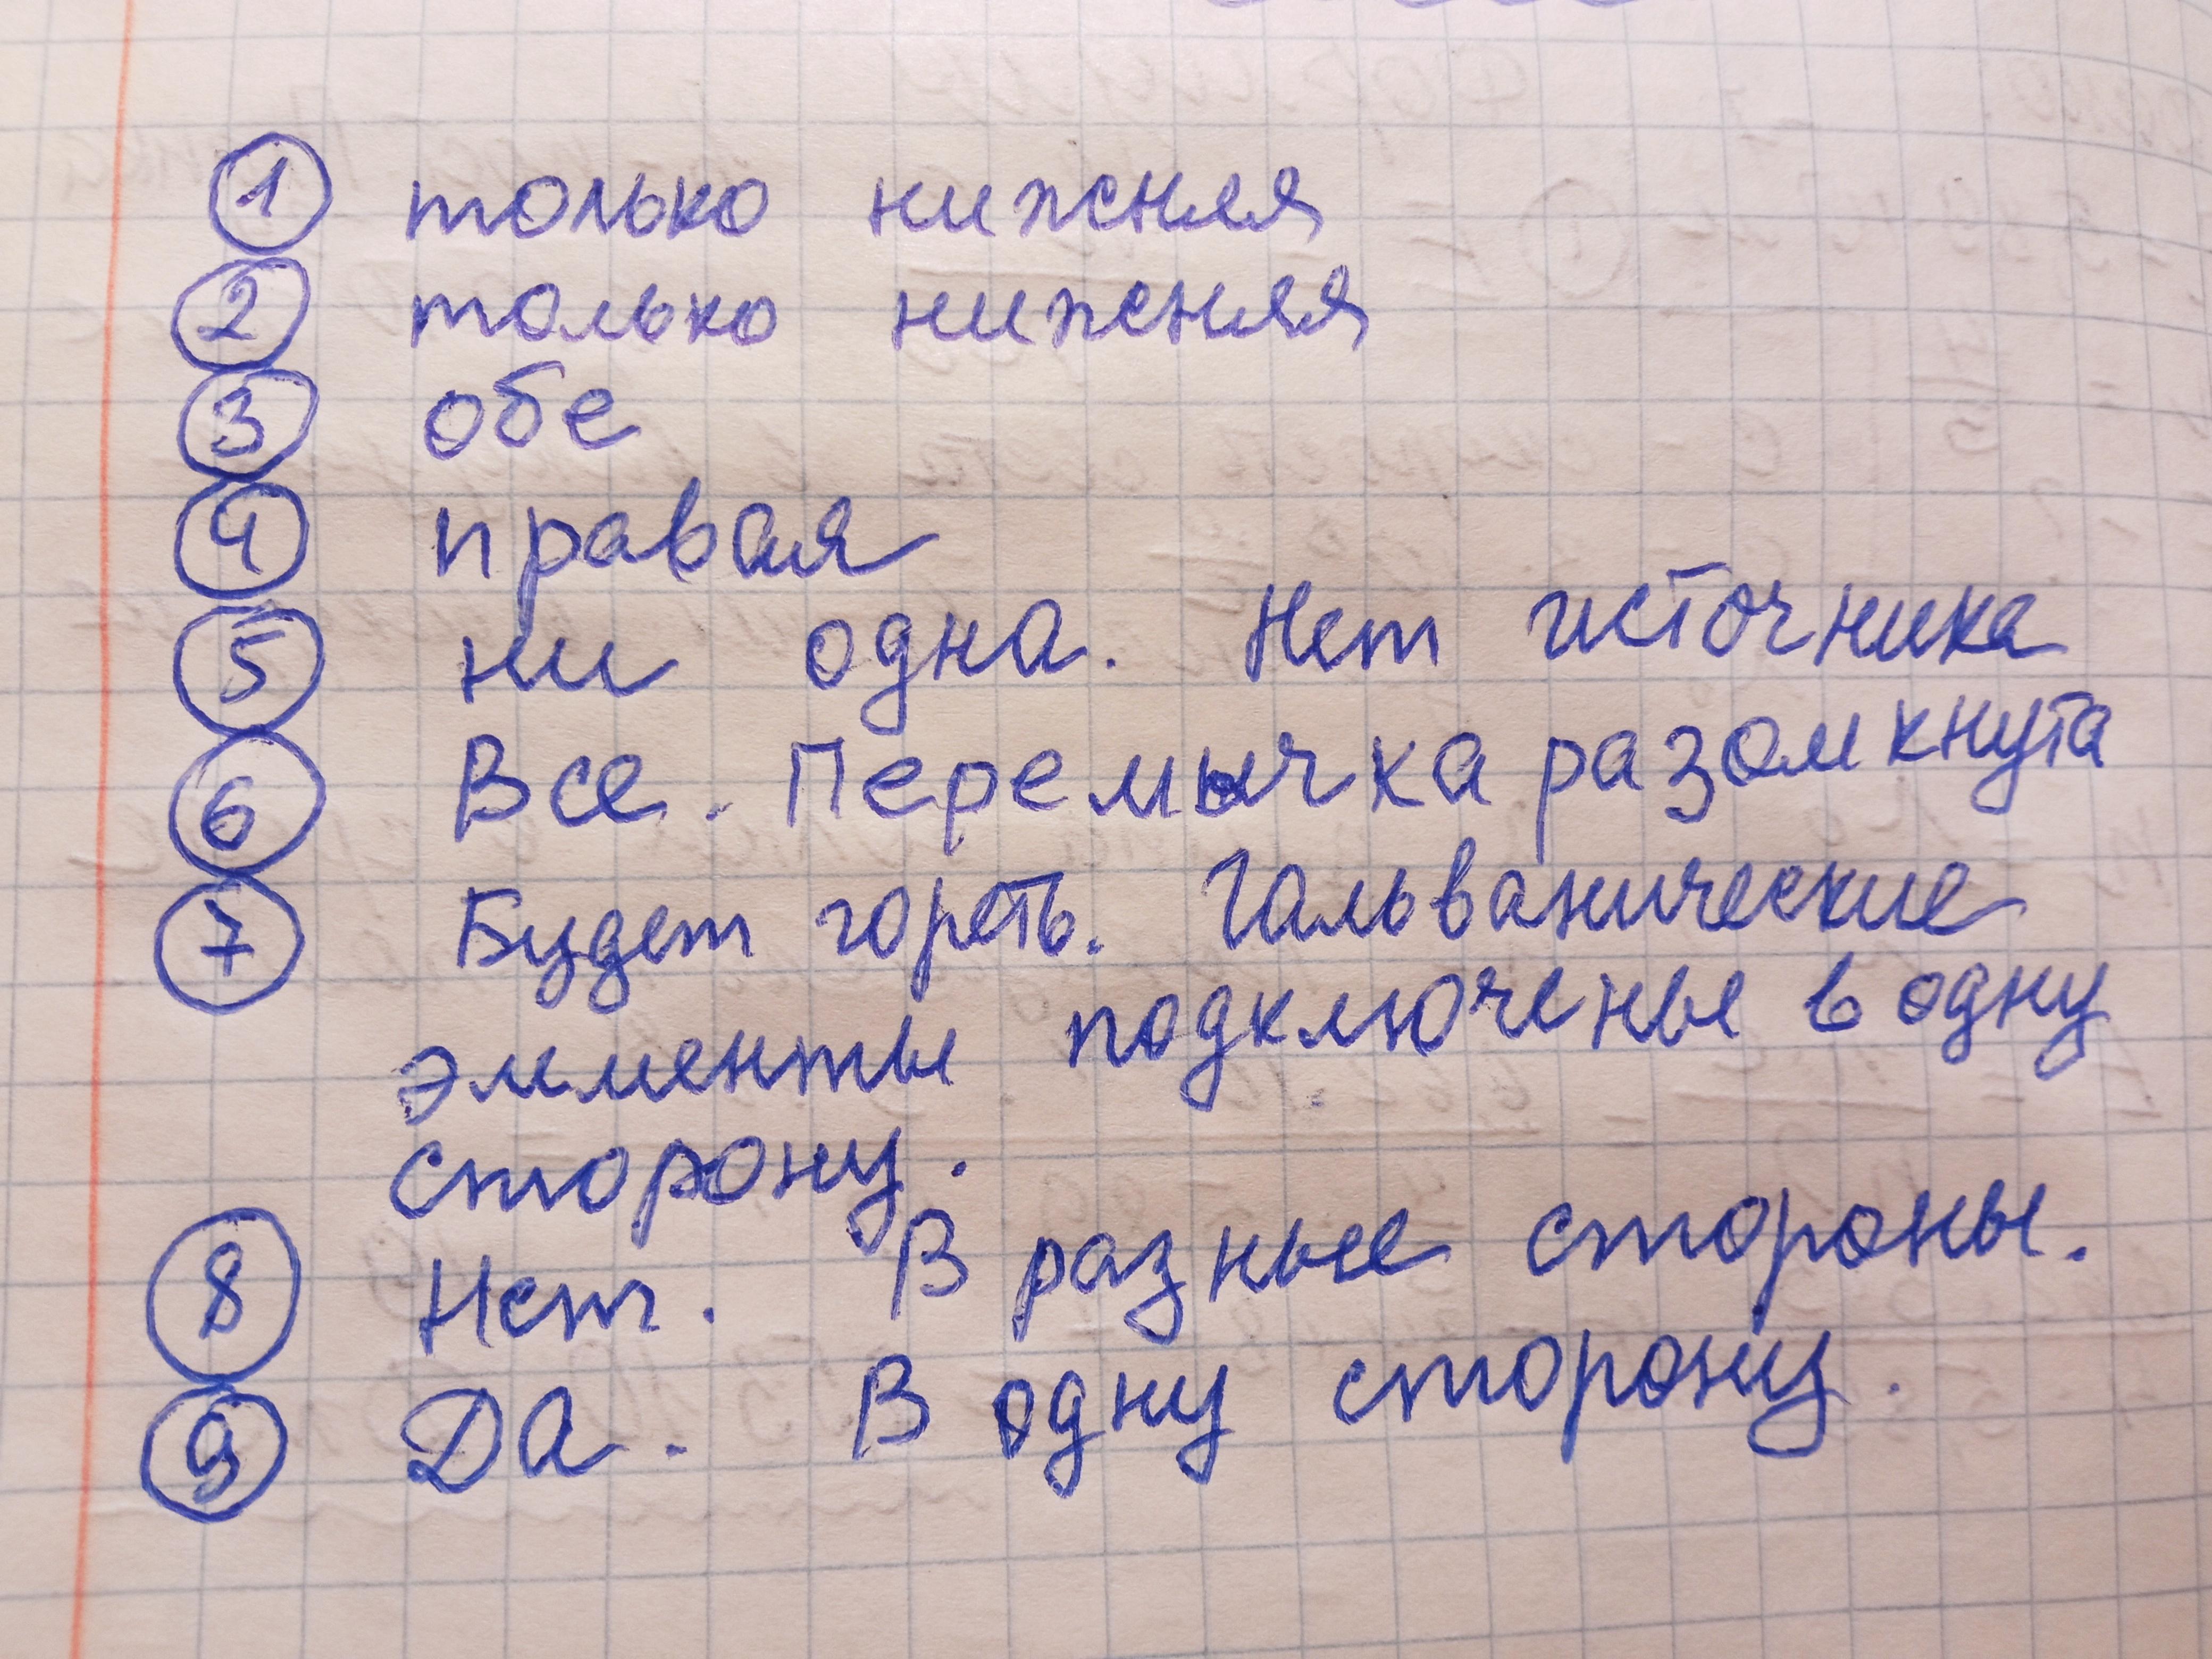 1 только нижняя
2 только нижняя
3 обе
4 правая
5 ни одна. Нет источника
6 Все. Перемычка разомкнута
7 Будет гореть. Гальванические
элементы подключены в одну
сторону.
8 Нет. В разные стороны.
9 Да. В одну сторону.